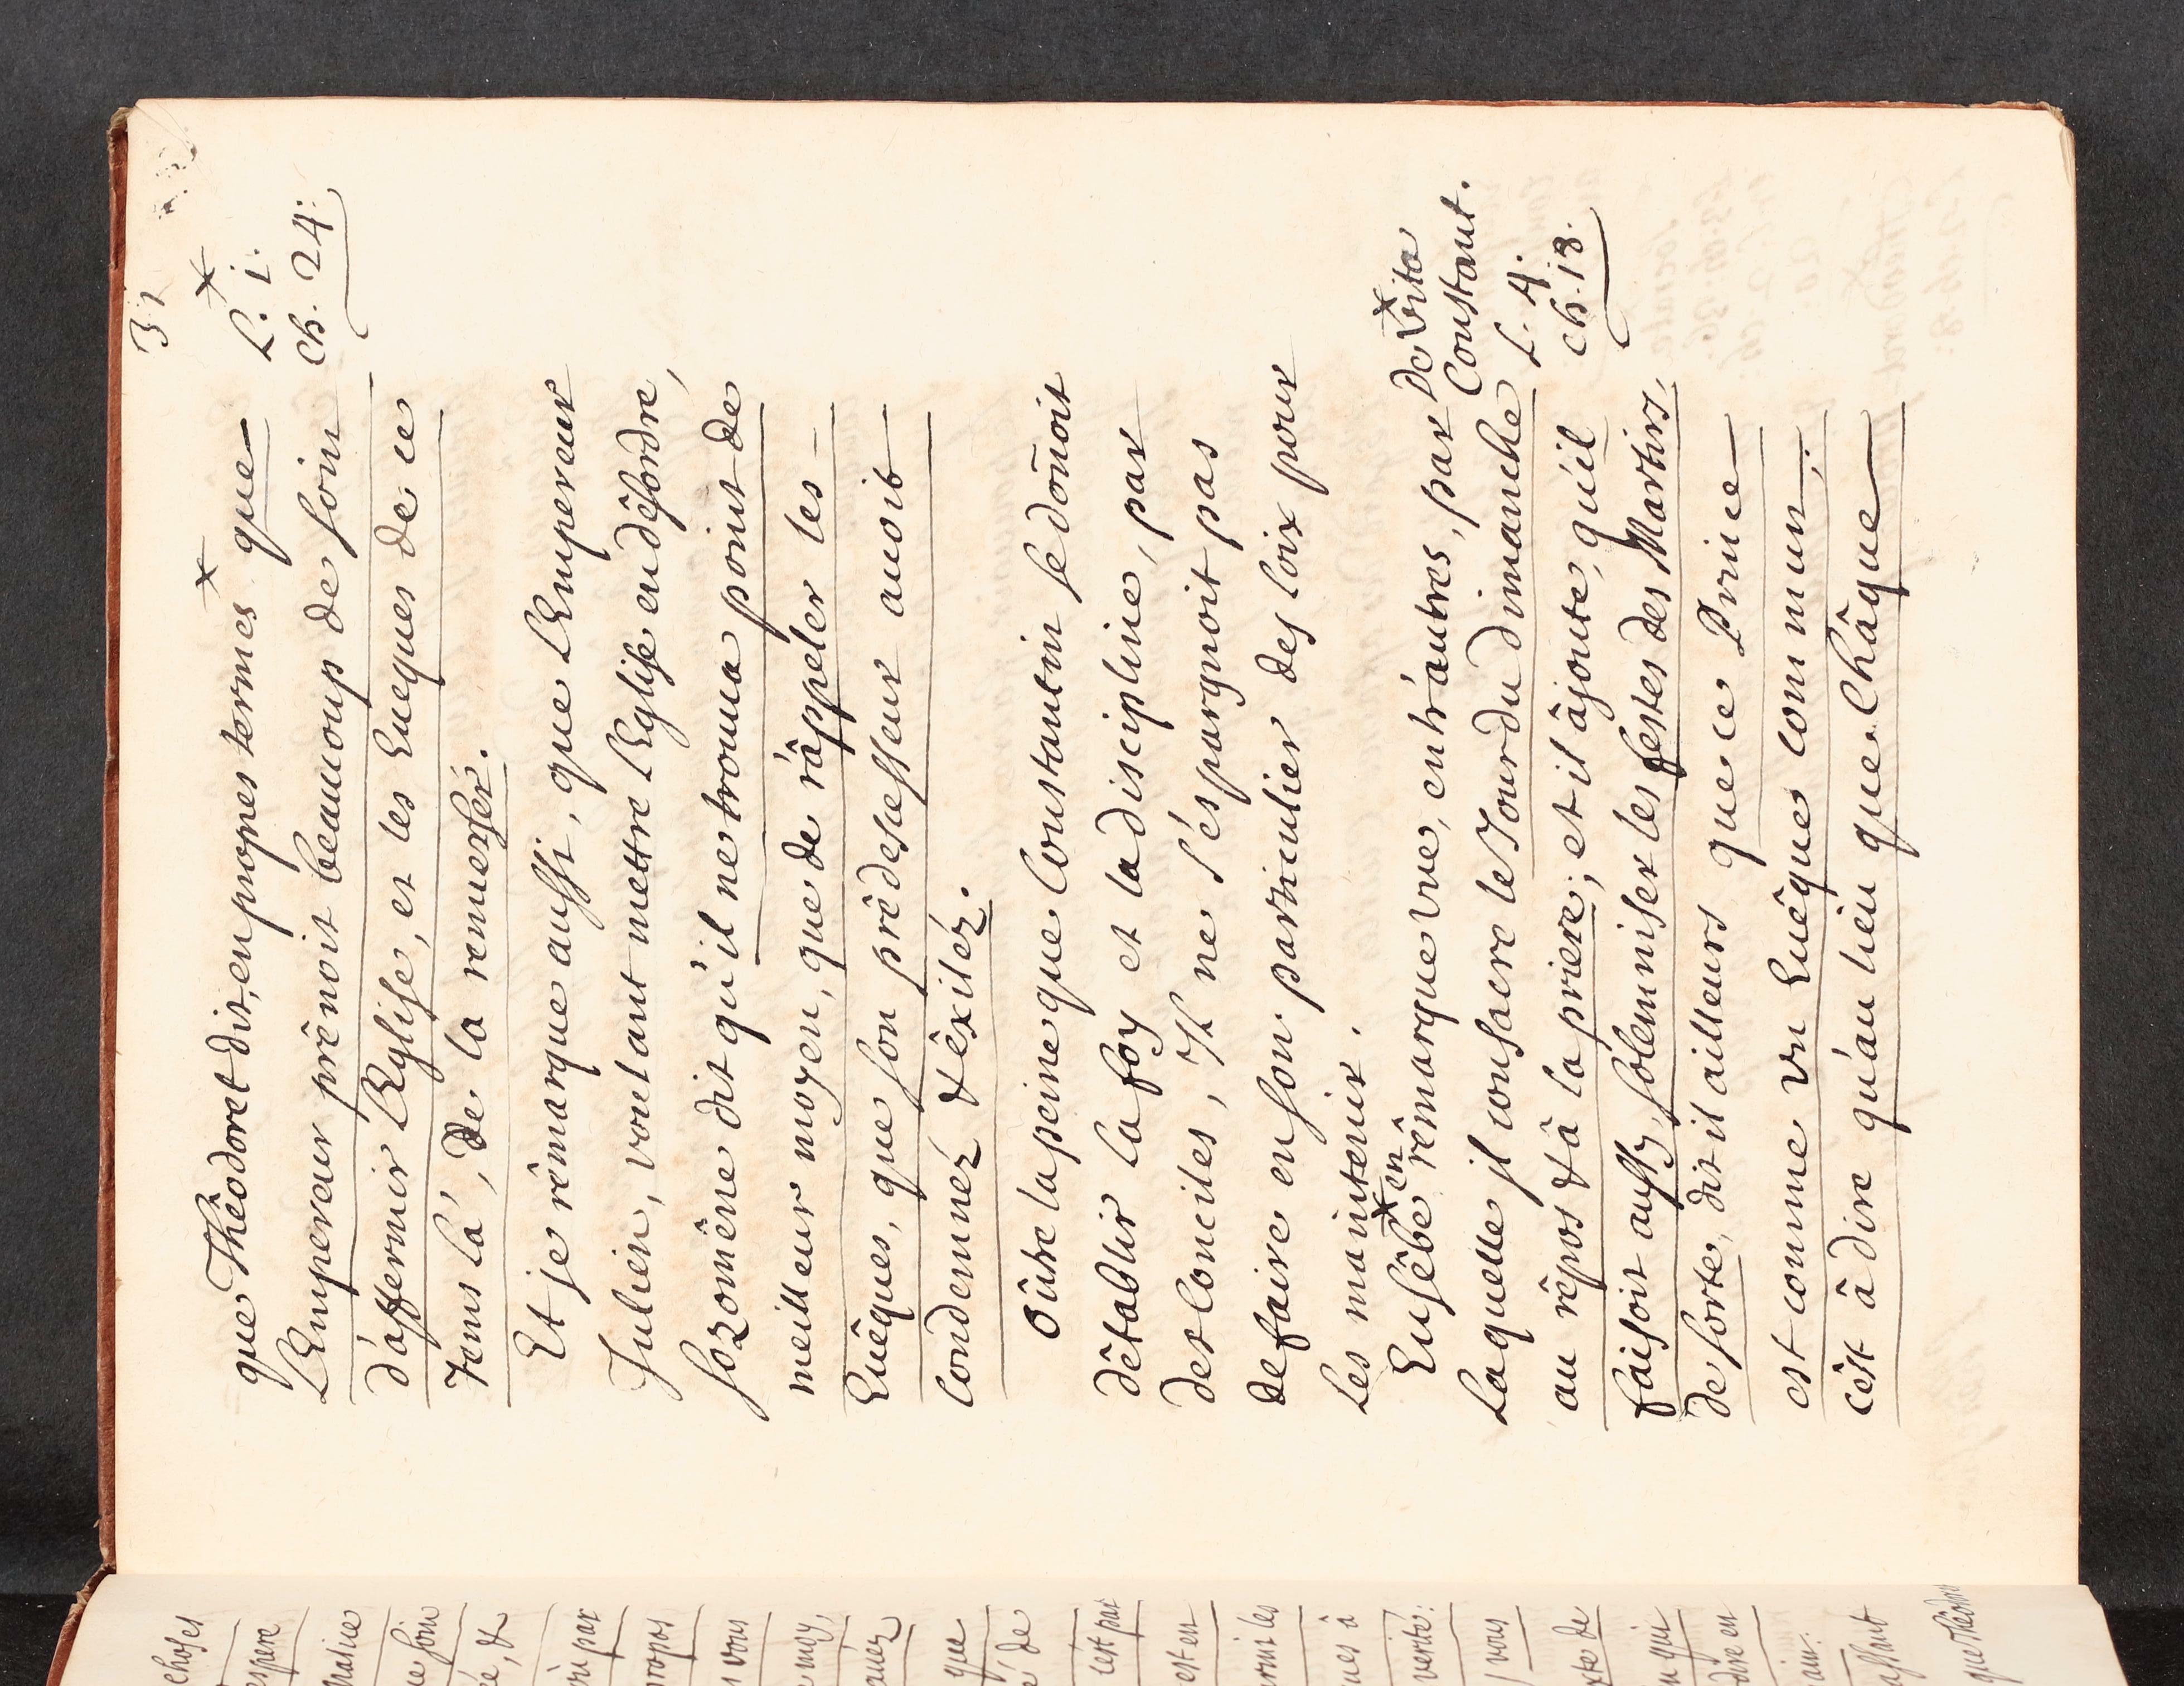 31
que Thêodoret dit, en propres termes × que
L'Empereur prênoit beaucoup de soin
d'affermir l'Eglise, et les Eueques de ce
Tems là, de la renuerser.
× L. i.
ch. 24.
Et je rêmarque aussi, que l'Empereur
Julien, voulant mettre l'Eglise en dêsordre,
sozomêne dit qu'il ne trouua point de
meilleur moyen, que de râppeler les
Euêques, que son prêdesesseur auoit
Condemnez & êxilez.
Oûtre la peine que Constantin se doñoit
dêtablir la foy et la discipline, par
des Conciles, Il ne s'épargnoit pas
de faire en son particulier des loix pour
Les maintenir.
Eusêbe × en rêmarque vne, entr'autres, par
Laquelle il consacre le Jour du dimanche
au rêpos & à la priere; et il âjoute, qu'il
faisoit aussy sôlemniser les festes des Martirs,
de sorte, dit il ailleurs que ce Prince
est comme vn Euêque commun;
cêst â dire qu'au lieu que Châque
× De Vita
Constant.
L. 4.
ch. 18.
choses
espere
ue soin
ée, &
propos
s vous
e moy,
que
é de
c'est par
est en
nir les
ues à
verité:
vous
xte de
n qui
dire en
ain.
assant
que Theodoret